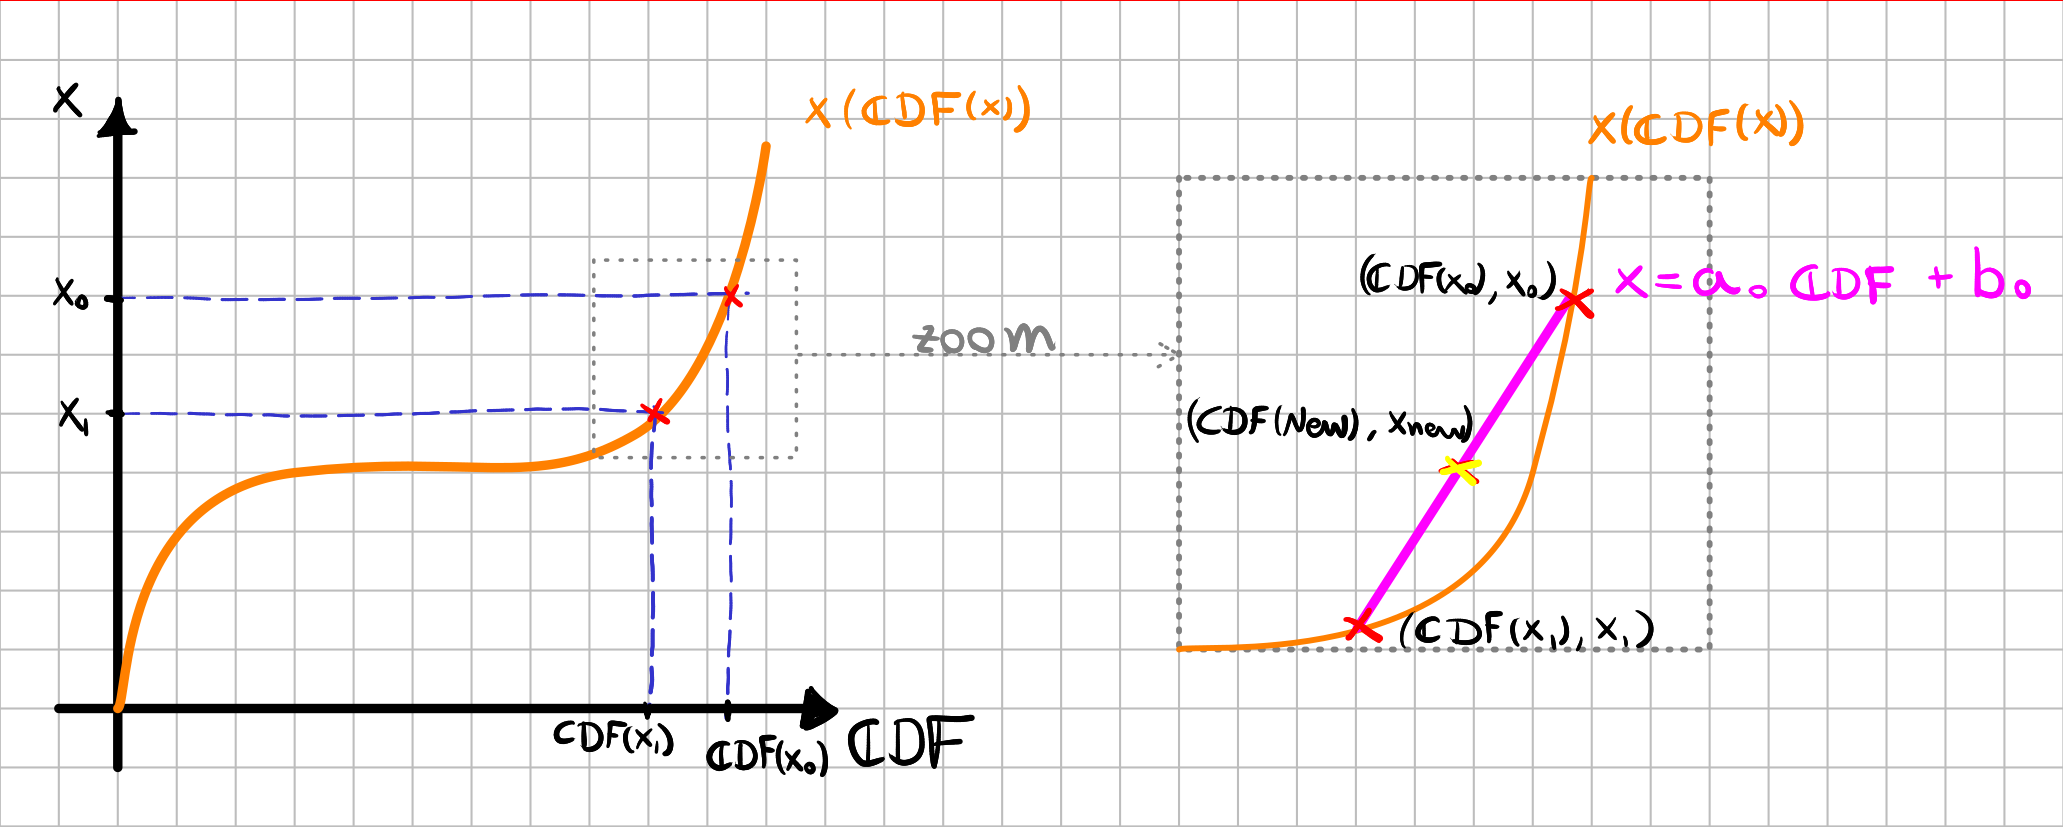 x
x(CDF(x))
x₀
x₁
CDF(x₁)
CDF(x₀)
CDF
zoom
x(CDF(x))
(CDF(x₀), x₀)
x = a₀ CDF + b₀
(CDF(New), xnew)
(CDF(x₁), x₁)